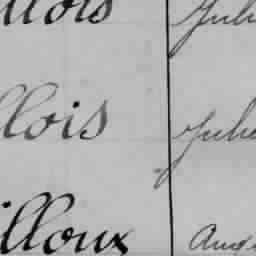 llois Jule
llois Jule
illoux Aug